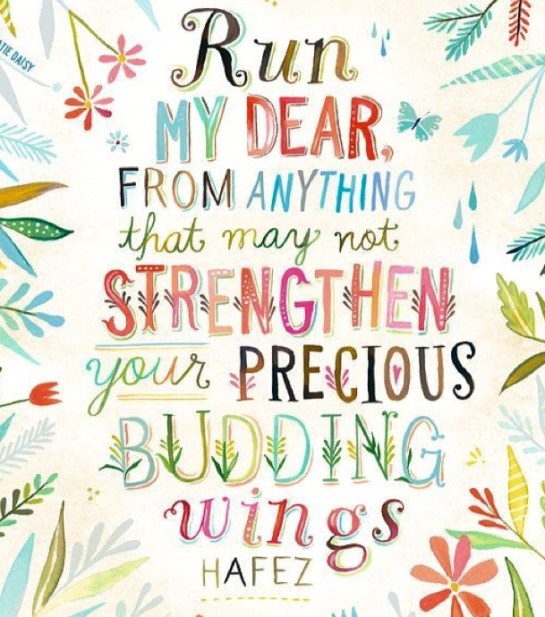 Run
MY DEAR,
FROM ANYTHING
that may not
STRENGTHEN
your PRECIOUS
BUDDING
wings
HAFEZ
DAISY